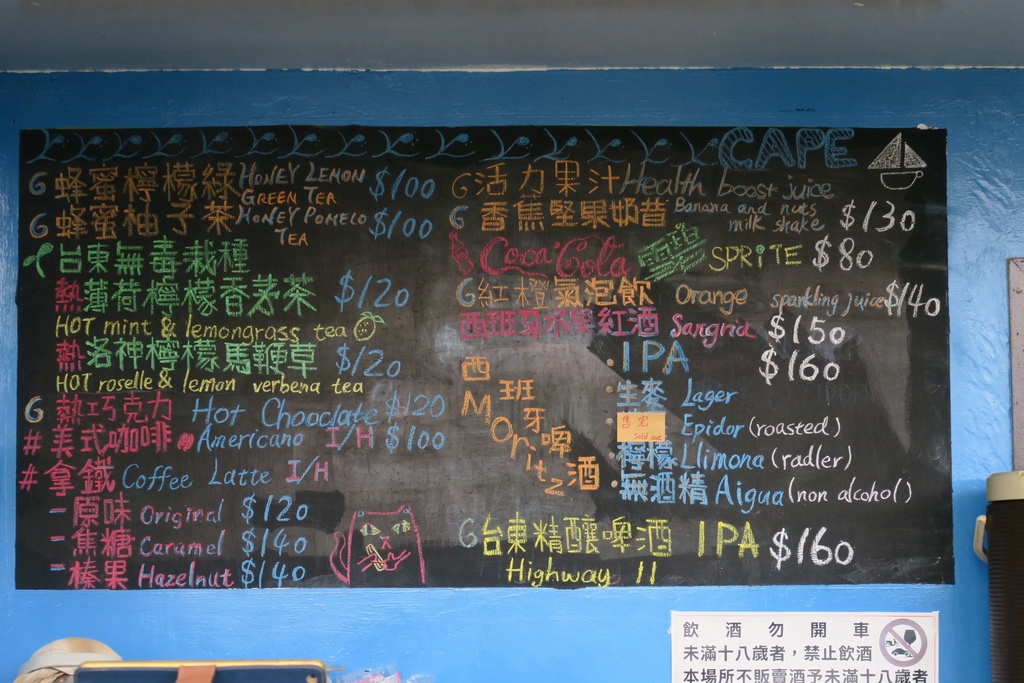 CAPE
G 蜂蜜檸檬綠 HONEY LEMON GREEN TEA $100
G 蜂蜜柚子茶 HONEY POMELO TEA $100
台東無毒栽種
熱薄荷檸檬香茅茶 $120
HOT mint & lemongrass tea
熱洛神檸檬馬鞭草 $120
HOT roselle & lemon verbena tea
G 熱巧克力 Hot Chooclate $120
# 美式咖啡 Americano I/H $100
# 拿鐵 Coffee Latte I/H
- 原味 Original $120
- 焦糖 Caramel $140
- 榛果 Hazelnut $140
G 活力果汁 Health boost juice
G 香焦堅果奶昔 Banana and nuts milk shake $130
Coca Cola 雪碧 SPRiTE $80
G 紅橙氣泡飲 Orange sparkling juice $140
西班牙水果紅酒 Sangria $150
西班牙啤酒 Moritz
· IPA $160
· 生麥 Lager
售完 sold out Epidor (roasted)
· 檸檬 Llimona (radler)
· 無酒精 Aigua (non alcohol)
G 台東精釀啤酒 IPA $160
Highway 11
飲酒勿開車
未滿十八歲者，禁止飲酒
本場所不販賣酒予未滿十八歲者